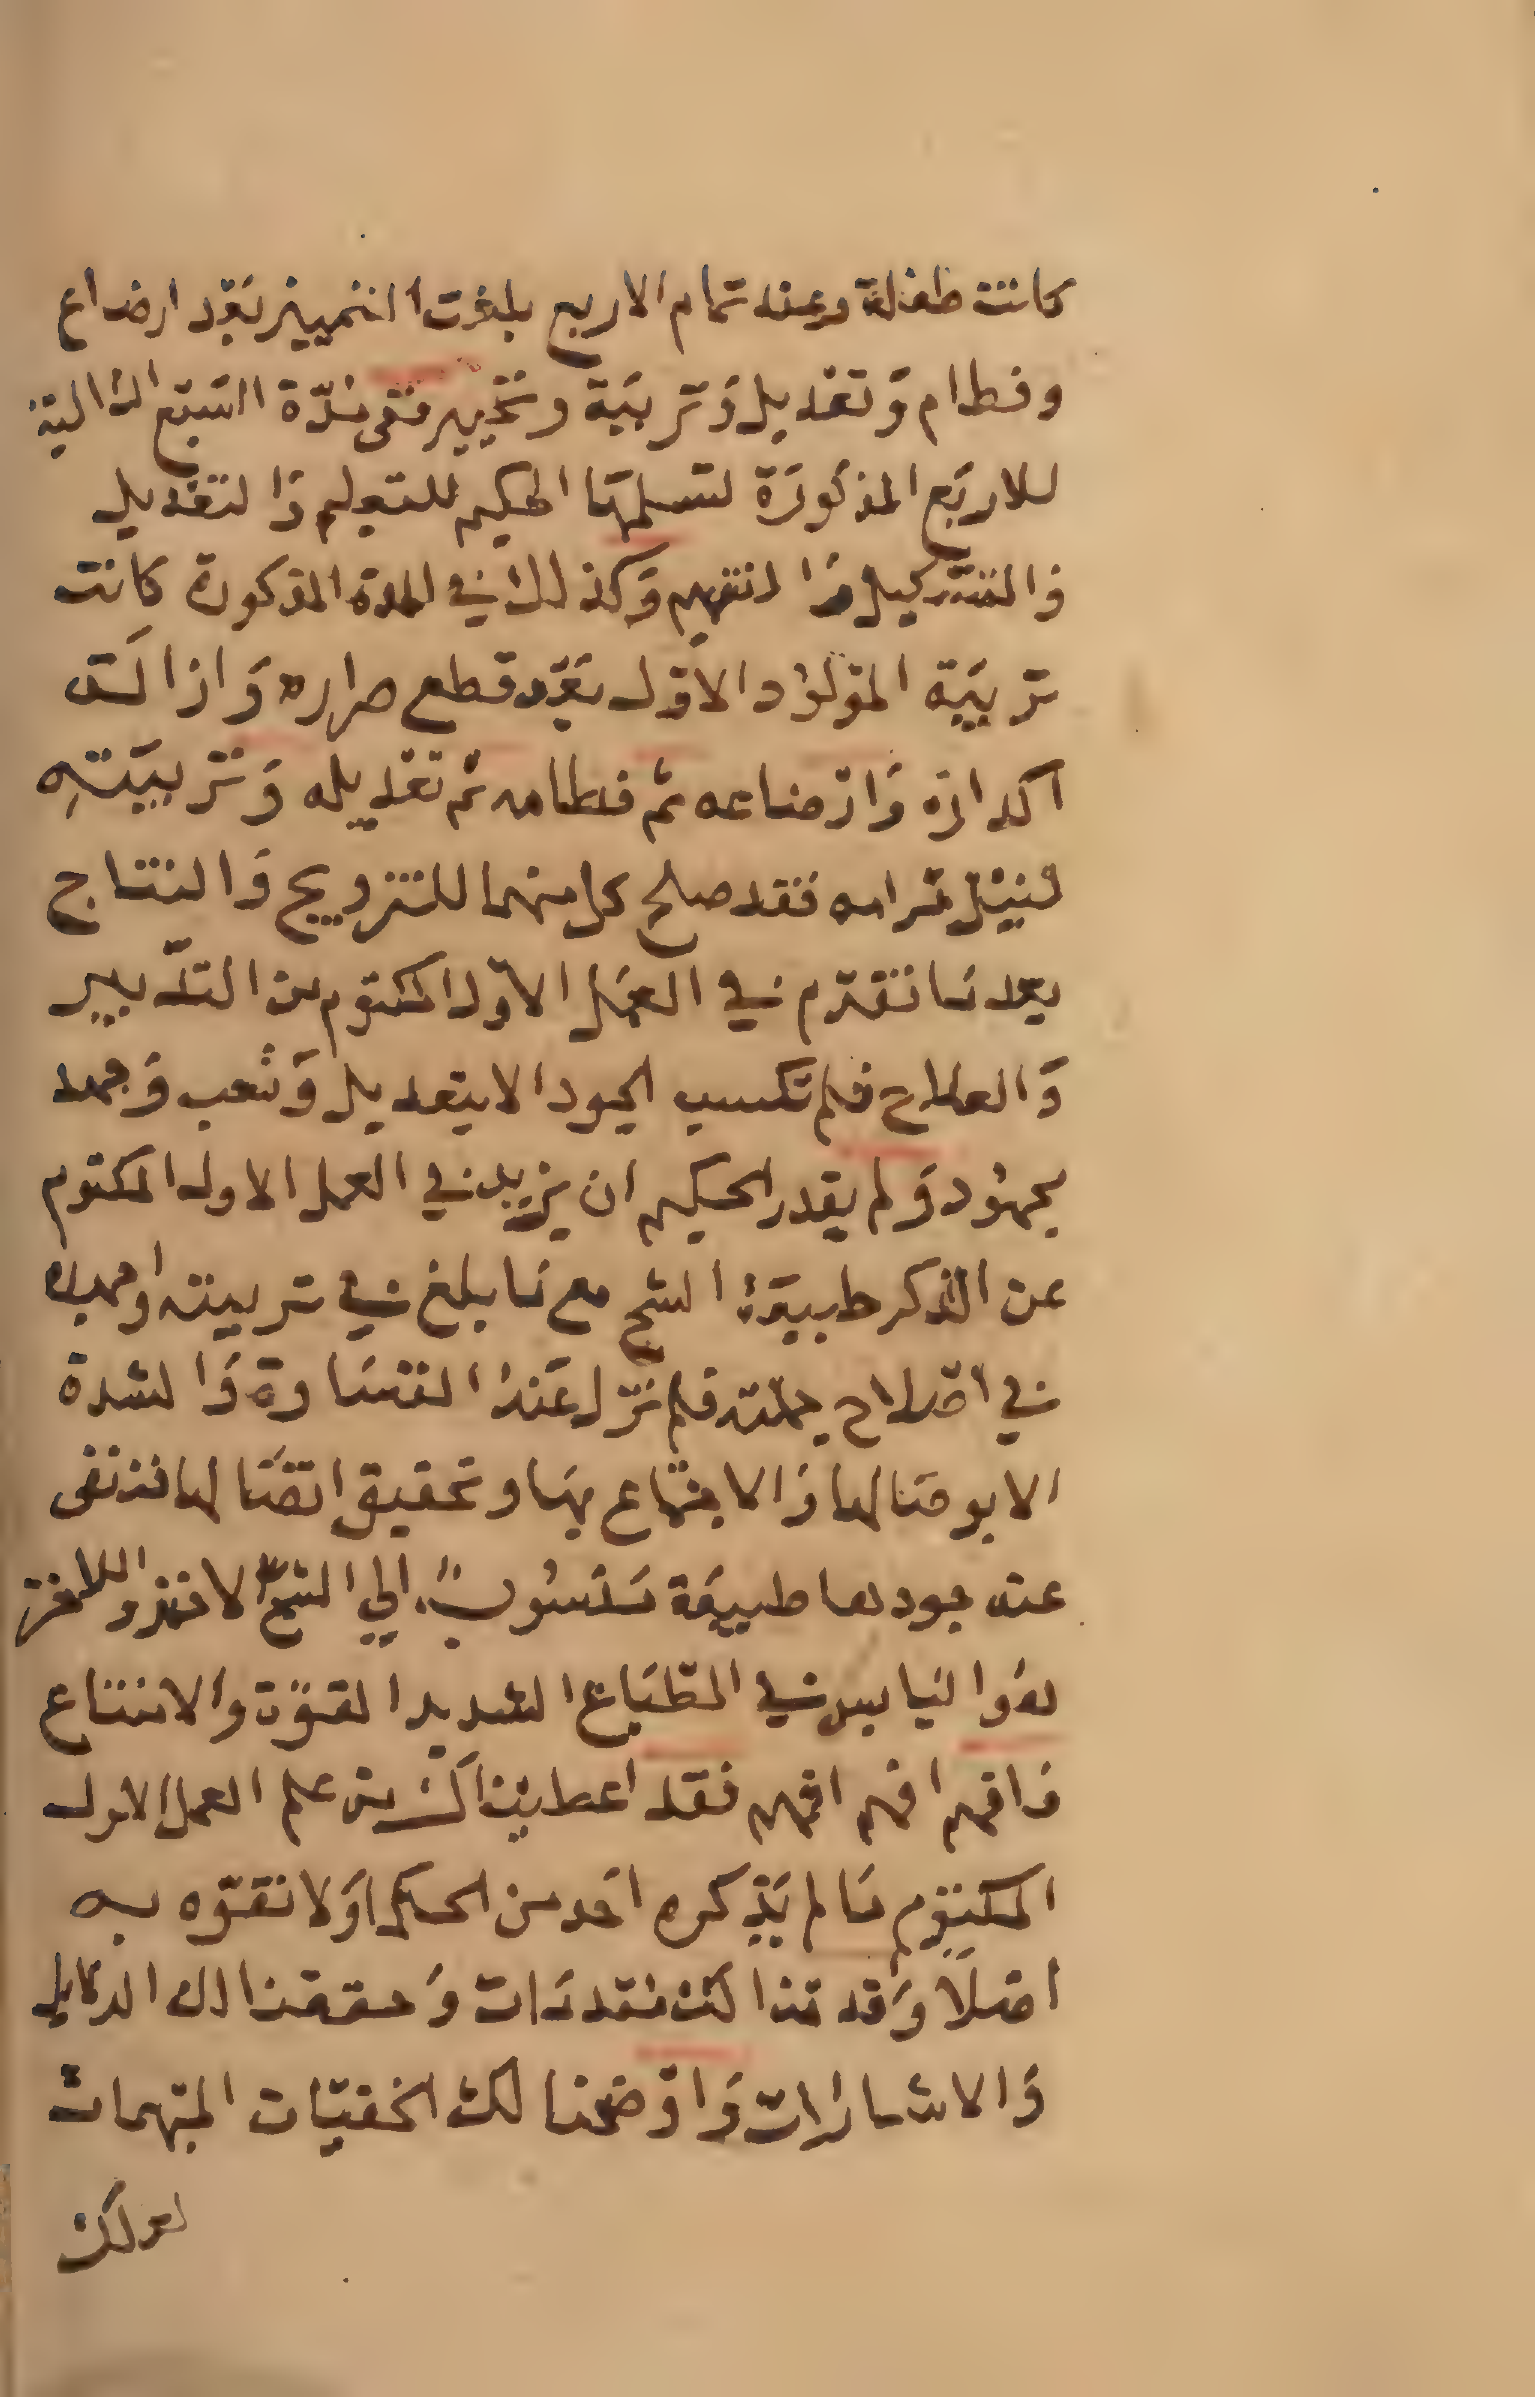 كانت طفلة وعند تمام الاربع بلغت التمييز بعد ارضاع
وفطام وَتعديل وَتربيَة وتخيير ففى مدّة السَبع التالية
للاربَع المذكورَة لتسلمها الحكيم للتعليم وَالتعديل
وَالتشكيل وَالتفهيم وَكذلك في المدة المذكورة كانت
تربيَة المَولوُد الاوّل بَعْد قطع صراره وَازالة
اكداره وَارضاعه ثم فطامه ثم تعديله وَتربيَتهِ
لنيل مَرامه فقد صلح كل منهما للتزويج وَالنتاج
بعد مَا تقدم في العمَل الاوّل المكتوم من التدّبير
وَالعلاج فلم تكسب الجود الا بتعديل وَتعب وَجهد
مجهُود وَلم يقدر الحكيم ان يزيل في العمل الاول المكتوم
عن الذكر طبيعَة الشح مع مَا بلغ في تربيته وجهده
في اصْلاح جملته فلم تزل عَنهُ القسَاوة وَالشدة
الا بوصَالها وَالاجتماع بهَا وتحقيق اتصَالها فنفى
عنه جودها طبيعَة مَنسُوبةً الي الشحّ لا
وَاليابس في الطّبَاع الشديد القوّة والامتناع
فافهم افهم افهم فقد اعطيناك من علم العمل الاول
المكتوم مَا لم يَذكره احَد من الحكماء وَلا تفوّه به
اصْلًا وَقد مَنا لك مقدمَات وَحققنا لك الدلايل
وَالاشارات وَاوضحنا لك الخفيّات المبهمات
لعلك